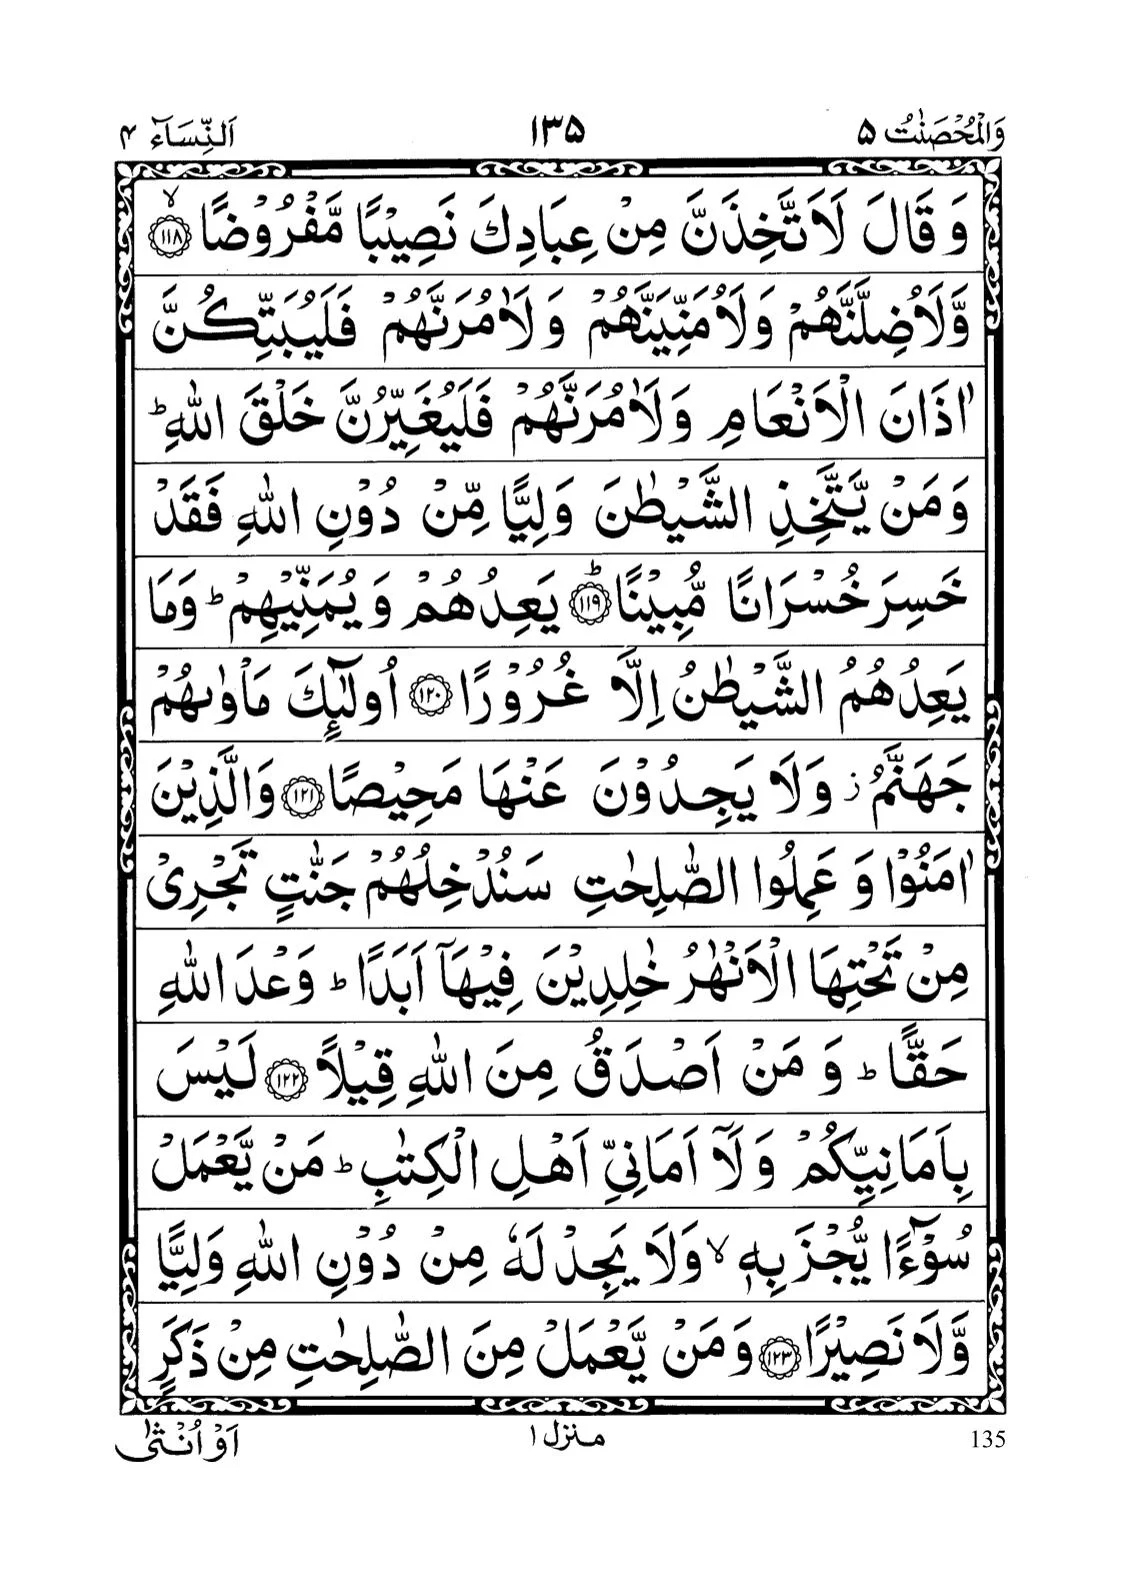 وَالْمُحْصَنٰتُ ۵ ۱۳۵ اَلنِّسَآء ۴
وَ قَالَ لَاَتَّخِذَنَّ مِنْ عِبَادِكَ نَصِيْبًا مَّفْرُوْضًا ﴿۱۱۸﴾ۙ
وَّلَاُضِلَّنَّهُمْ وَلَاُمَنِّيَنَّهُمْ وَلَاٰمُرَنَّهُمْ فَلَيُبَتِّكُنَّ
اٰذَانَ الْاَنْعَامِ وَلَاٰمُرَنَّهُمْ فَلَيُغَيِّرُنَّ خَلْقَ اللّٰهِ ؕ
وَمَنْ يَّتَّخِذِ الشَّيْطٰنَ وَلِيًّا مِّنْ دُوْنِ اللّٰهِ فَقَدْ
خَسِرَ خُسْرَانًا مُّبِيْنًا ﴿۱۱۹﴾ؕ يَعِدُهُمْ وَيُمَنِّيْهِمْ ؕ وَمَا
يَعِدُهُمُ الشَّيْطٰنُ اِلَّا غُرُوْرًا ﴿۱۲۰﴾ اُولٰٓئِكَ مَاْوٰىهُمْ
جَهَنَّمُ ز وَلَا يَجِدُوْنَ عَنْهَا مَحِيْصًا ﴿۱۲۱﴾ وَالَّذِيْنَ
اٰمَنُوْا وَ عَمِلُوا الصّٰلِحٰتِ سَنُدْخِلُهُمْ جَنّٰتٍ تَجْرِيْ
مِنْ تَحْتِهَا الْاَنْهٰرُ خٰلِدِيْنَ فِيْهَاۤ اَبَدًا ؕ وَعْدَ اللّٰهِ
حَقًّا ؕ وَ مَنْ اَصْدَقُ مِنَ اللّٰهِ قِيْلًا ﴿۱۲۲﴾ لَيْسَ
بِاَمَانِيِّكُمْ وَلَاۤ اَمَانِيِّ اَهْلِ الْكِتٰبِ ؕ مَنْ يَّعْمَلْ
سُوْٓءًا يُّجْزَ بِهٖ ۙ وَلَا يَجِدْ لَهٗ مِنْ دُوْنِ اللّٰهِ وَلِيًّا
وَّلَا نَصِيْرًا ﴿۱۲۳﴾ وَمَنْ يَّعْمَلْ مِنَ الصّٰلِحٰتِ مِنْ ذَكَرٍ
135 منزل ۱ اَوْ اُنْثٰى